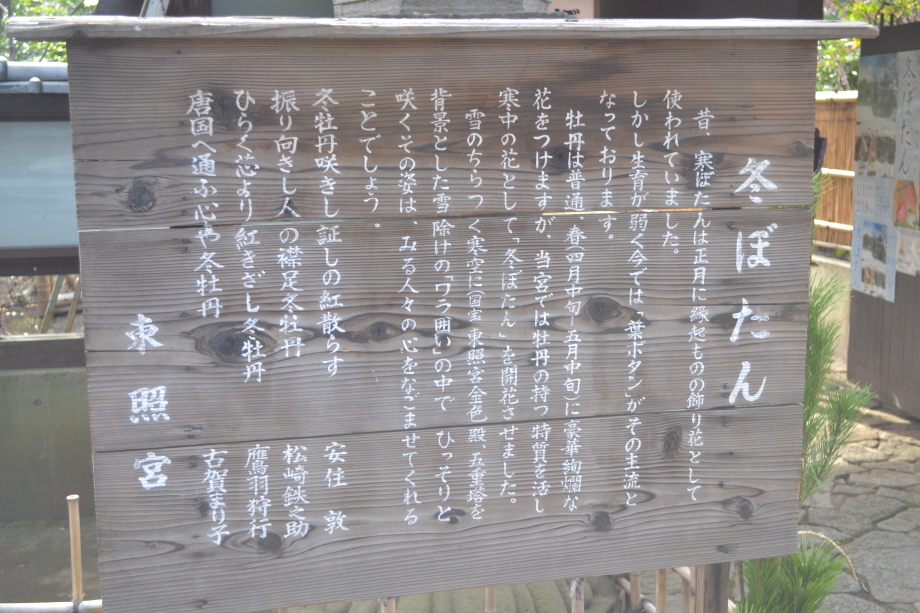 冬ぼたん
昔、寒ぼたんは正月に縁起ものの飾り花として
使われていました。
しかし生育が弱く今では「葉ボタン」がその主流と
なっております。
牡丹は普通、春(四月中旬―五月中旬)に豪華絢爛な
花をつけますが、当宮では牡丹の持つ特質を活し
寒中の花として「冬ぼたん」を開花させました。
雪のちらつく寒空に国宝東照宮金色殿、五重塔を
背景とした雪除けの「ワラ囲い」の中で ひっそりと
咲くその姿は、みる人々の心をなごませてくれる
ことでしょう。
冬牡丹咲きし証しの紅散らす 安住敦
振り向きし人の襟足冬牡丹 松崎鉄之助
ひらく芯より紅きざし冬牡丹 鷹羽狩行
唐国へ通ふ心や冬牡丹 古賀まり子
東照宮
冬ぼたん